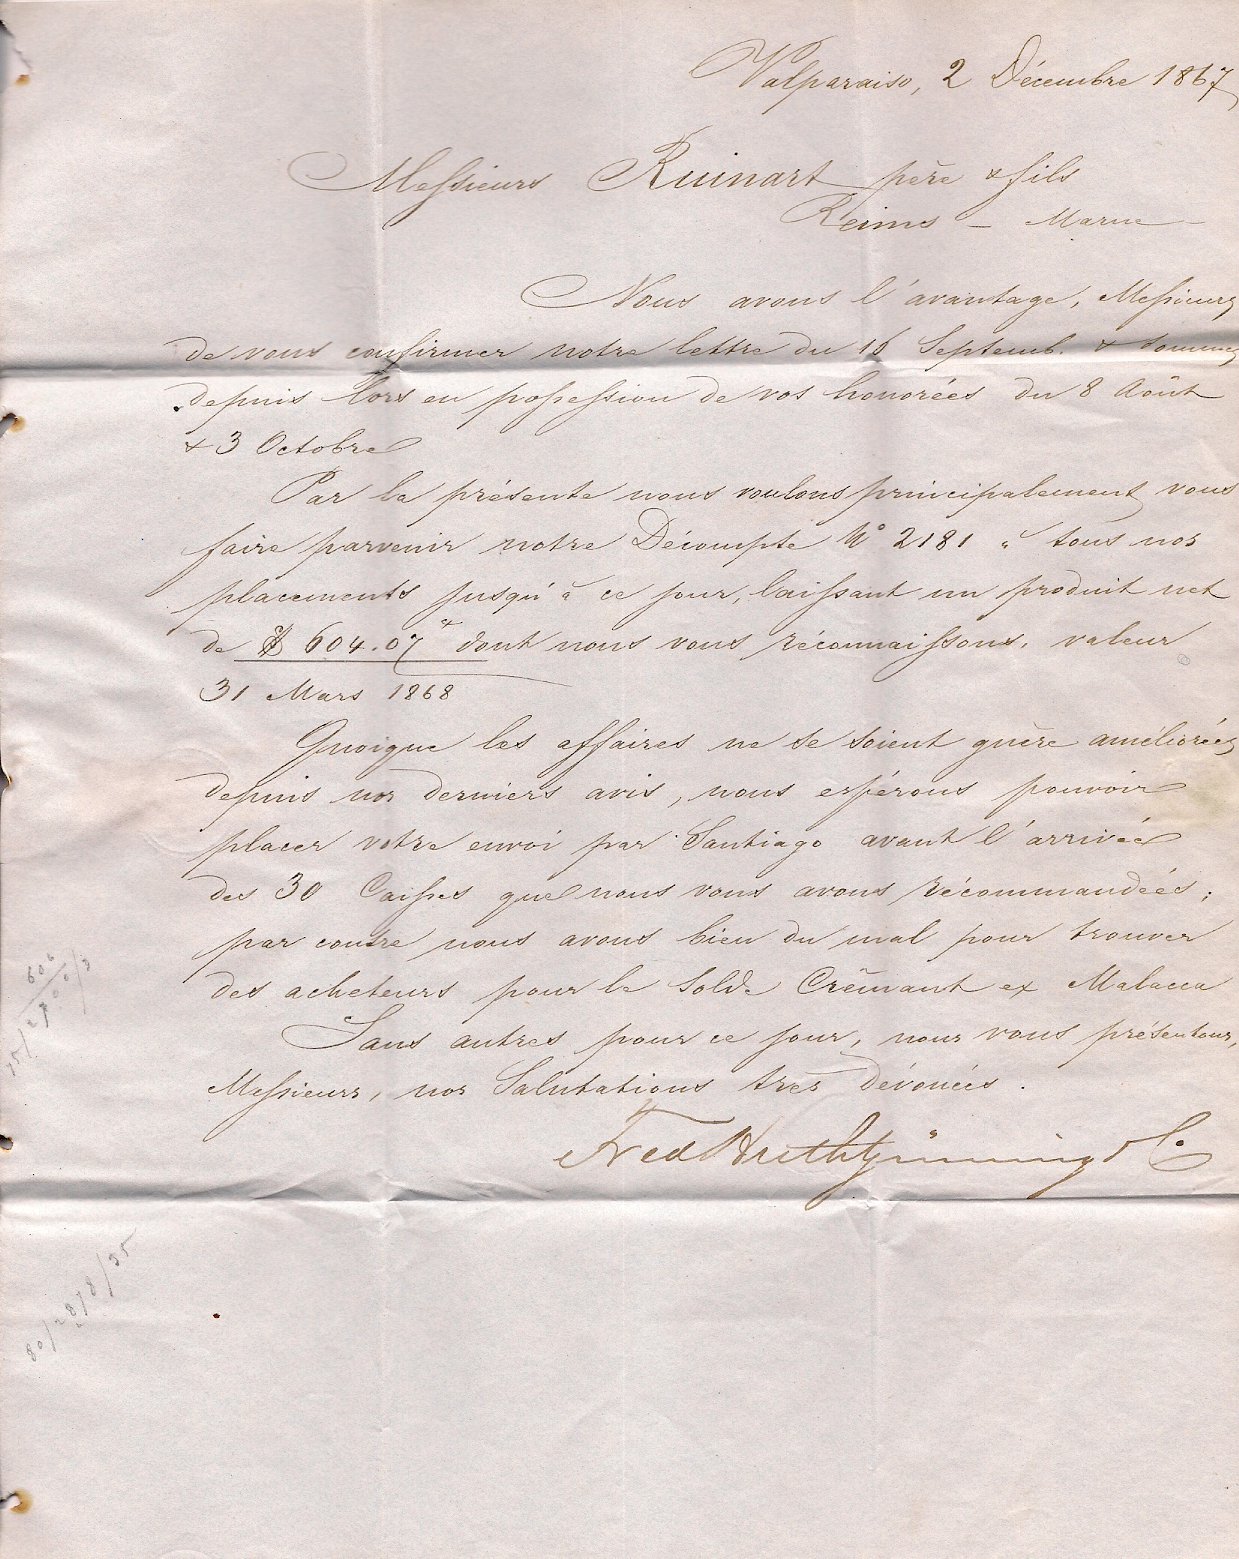 Valparaiso, 2 Décembre 1867
Messieurs Ruinart père & fils
Reims – Marne
Nous avons l'avantage, Messieurs
de vous confirmer notre lettre du 16 Septemb. & sommes
depuis lors en possession de vos honorées du 8 Août
& 3 Octobre
Par la présente nous voulons principalement vous
faire parvenir notre Décompte No 2181 „ tous nos
placements jusqu'à ce jour, laissant un produit net
de $ 604.07 dont nous vous réconnaissons, valeur
31 Mars 1868
Quoique les affaires ne se soient guère améliorées
depuis nos derniers avis, nous espérons pouvoir
placer votre envoi par Santiago avant l'arrivée
des 30 Caisses que nous vous avons récommandées;
par contre nous avons bien du mal pour trouver
des acheteurs pour le solde Crêmant ex Malacca
Sans autres pour ce jour, nous vous présentons,
Messieurs, nos Salutations très dévouées.
Fred Huth Grüning & Co
80/28/8/35